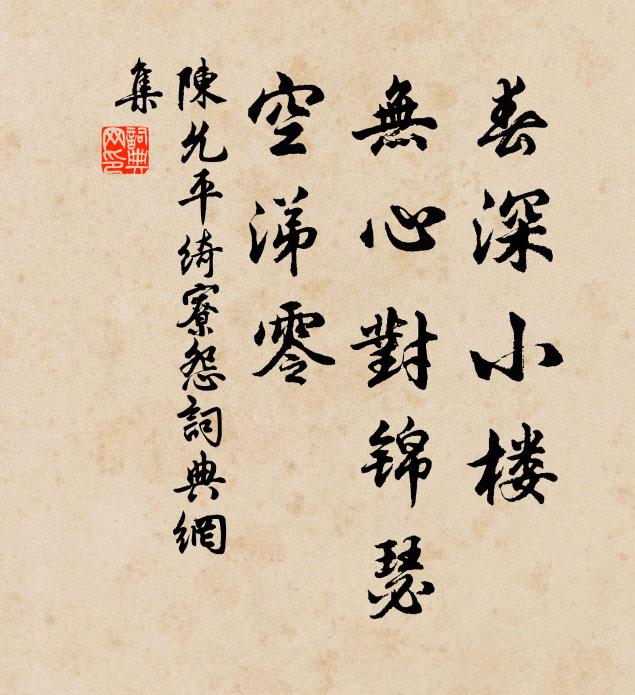 春深小楼
無心對锦瑟
空涕零
陳允平綺寮怨詞典網
集
詞典网印